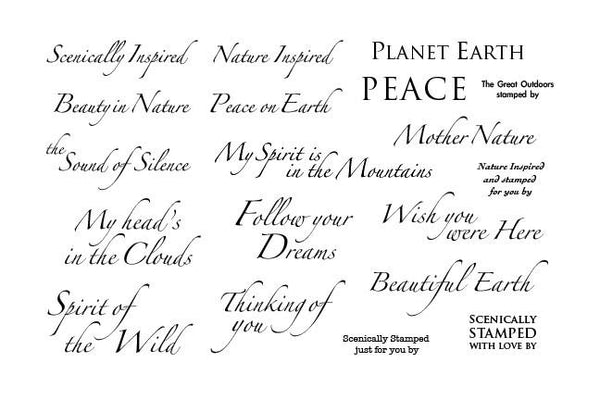 Scenically Inspired
Nature Inspired
PLANET EARTH
PEACE
The Great Outdoors
stamped by
Beauty in Nature
Peace on Earth
Mother Nature
the
Sound of Silence
My Spirit is
in the Mountains
Nature Inspired
and stamped
for you by
My head's
in the Clouds
Follow your
Dreams
Wish you
were Here
Beautiful Earth
Spirit of
the Wild
Thinking of
you
Scenically Stamped
just for you by
SCENICALLY
STAMPED
WITH LOVE BY